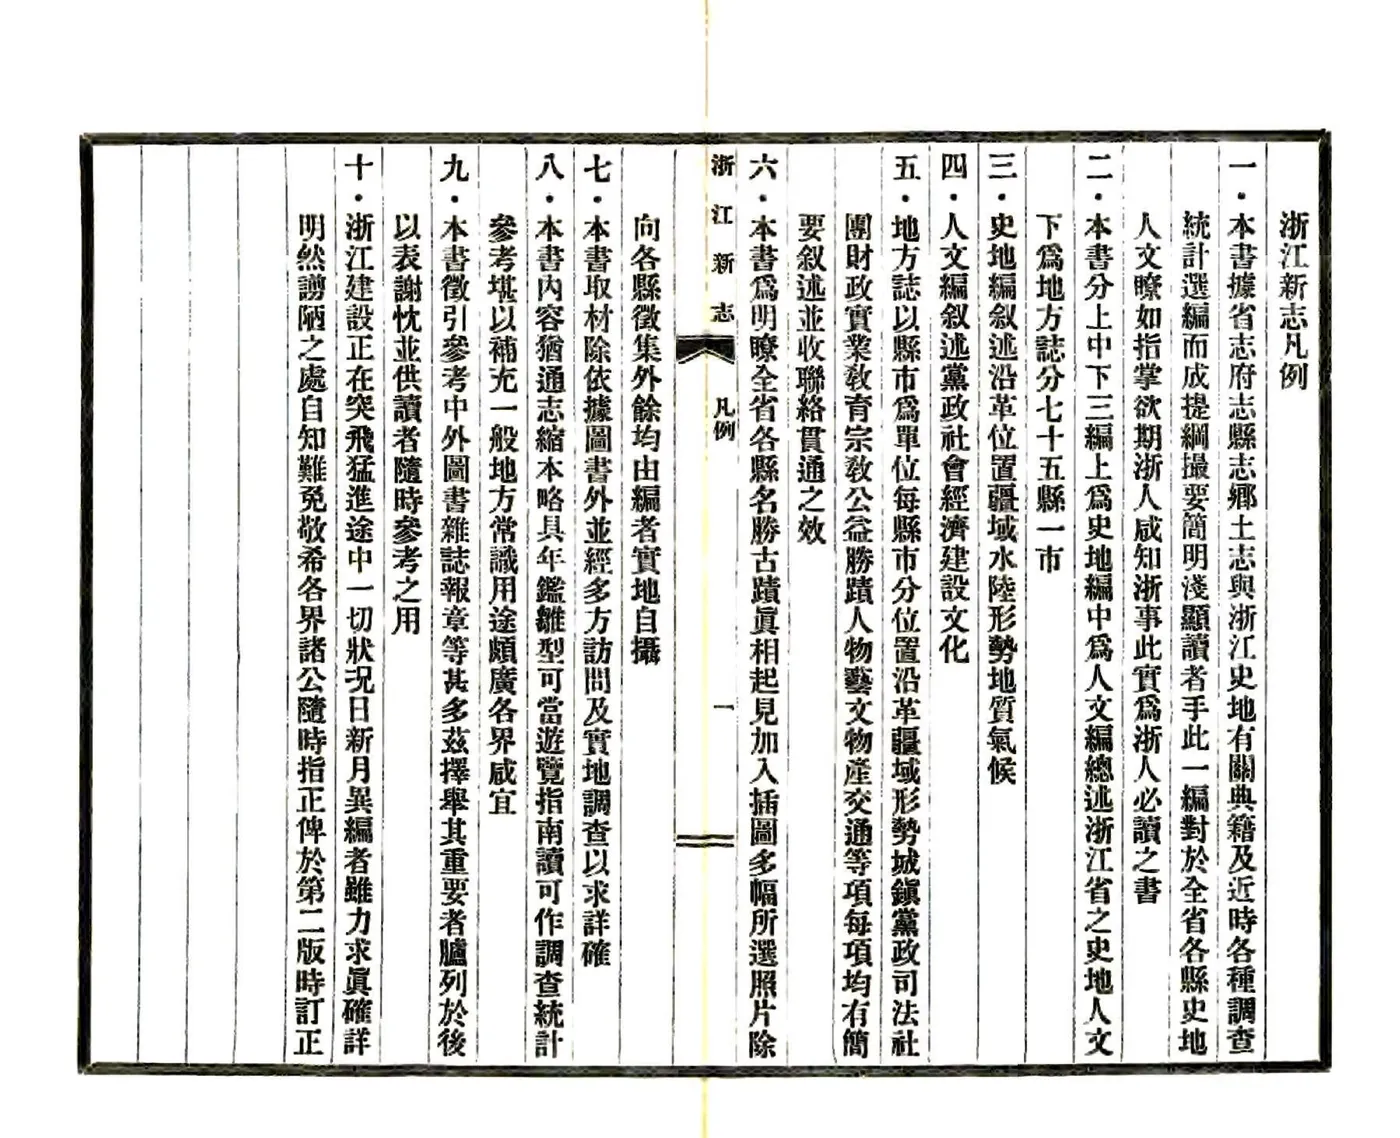 浙江新志凡例
一・本書據省志府志縣志鄉土志與浙江史地有關典籍及近時各種調查
統計選編而成提綱撮要簡明淺顯讀者手此一編對於全省各縣史地
人文瞭如指掌欲期浙人咸知浙事此實爲浙人必讀之書
二・本書分上中下三編上爲史地編中爲人文編總述浙江省之史地人文
下爲地方誌分七十五縣一市
三・史地編叙述沿革位置疆域水陸形勢地質氣候
四・人文編叙述黨政社會經濟建設文化
五・地方誌以縣市爲單位每縣市分位置沿革疆域形勢城鎭黨政司法社
團財政實業敎育宗敎公益勝蹟人物藝文物產交通等項每項均有簡
要叙述並收聯絡貫通之效
六・本書爲明瞭全省各縣名勝古蹟眞相起見加入插圖多幅所選照片除
浙江新志
凡例
一
向各縣徵集外餘均由編者實地自攝
七・本書取材除依據圖書外並經多方訪問及實地調查以求詳確
八・本書內容猶通志縮本略具年鑑雛型可當遊覽指南讀可作調查統計
參考堪以補充一般地方常識用途頗廣各界咸宜
九・本書徵引參考中外圖書雜誌報章等甚多茲擇舉其重要者臚列於後
以表謝忱並供讀者隨時參考之用
十・浙江建設正在突飛猛進途中一切狀况日新月異編者雖力求眞確詳
明然謭陋之處自知難免敬希各界諸公隨時指正俾於第二版時訂正